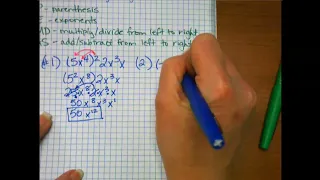 P - parenthesis
E - exponents
MD - multiply/divide from left to right
AS - add/subtract from left to right
#1) (5x⁴)²2x³x (2) (-
(5²x⁸)2x³x
x⁸ x³x
50x⁸x³x¹
50x¹²